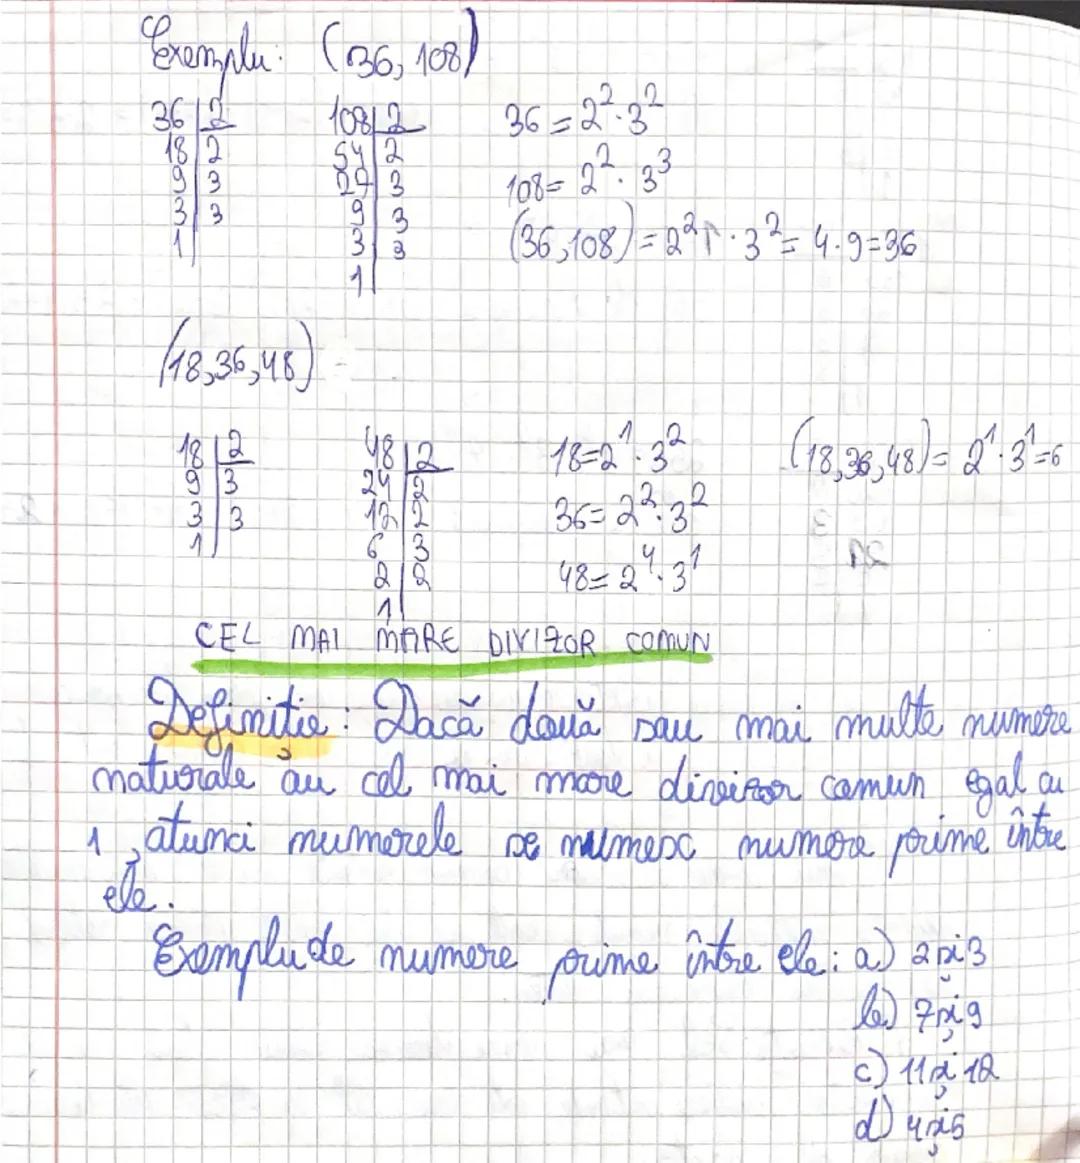 Exemplu: (36, 108)
36 | 2 108 | 2 36 = 2² · 3²
18 | 2 54 | 2
9 | 3 27 | 3 108 = 2² · 3³
3 | 3 9 | 3 (36, 108) = 2² · 3² = 4 · 9 = 36
1 | 3 | 3
1 |
(18, 36, 48)
18 | 2 48 | 2 18 = 2¹ · 3² (18, 36, 48) = 2¹ · 3¹ = 6
9 | 3 24 | 2
3 | 3 12 | 2 36 = 2² · 3²
1 | 6 | 3
2 | 2 48 = 2⁴ · 3¹
1 |
CEL MAI MARE DIVIZOR COMUN
Definiție: Dacă două sau mai multe numere
naturale au cel mai mare divizor comun egal cu
1, atunci numerele se numesc numere prime între
ele.
Exemplu de numere prime între ele: a) 2 și 3
b) 7 și 9
c) 11 și 12
d) 4 și 5